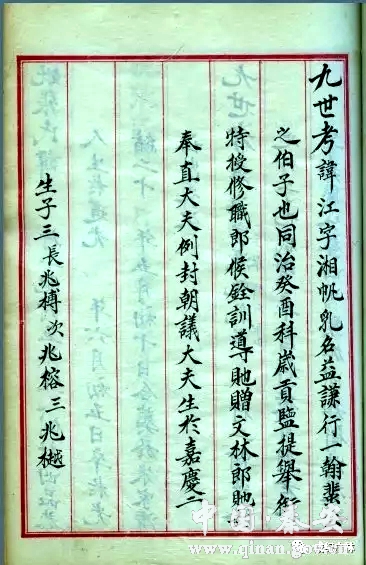 九世考諱江字湘帆乳名益謙行一翰蜚
之伯子也同治癸酉科歲貢鹽提舉銜
特授修職郎候銓訓導貤贈文林郎貤
奉直大夫例封朝議大夫生於嘉慶二
生子三長兆榑次兆榕三兆樾
中国·秦安
www.qinan.gov.cn